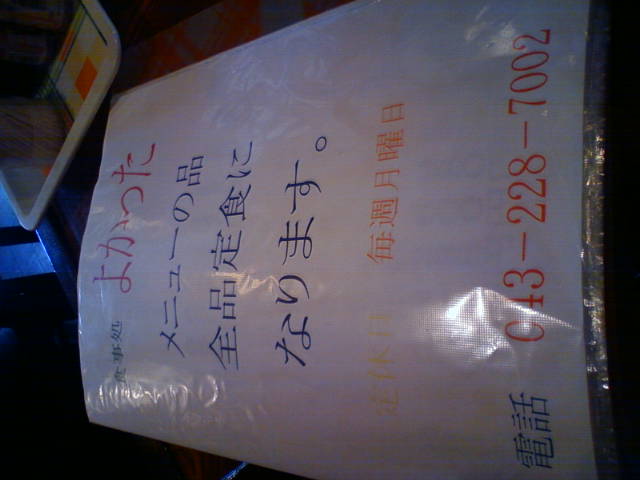 食事処 よかった
メニューの品
全品定食に
なります。
定休日 毎週月曜日
電話 043-228-7002